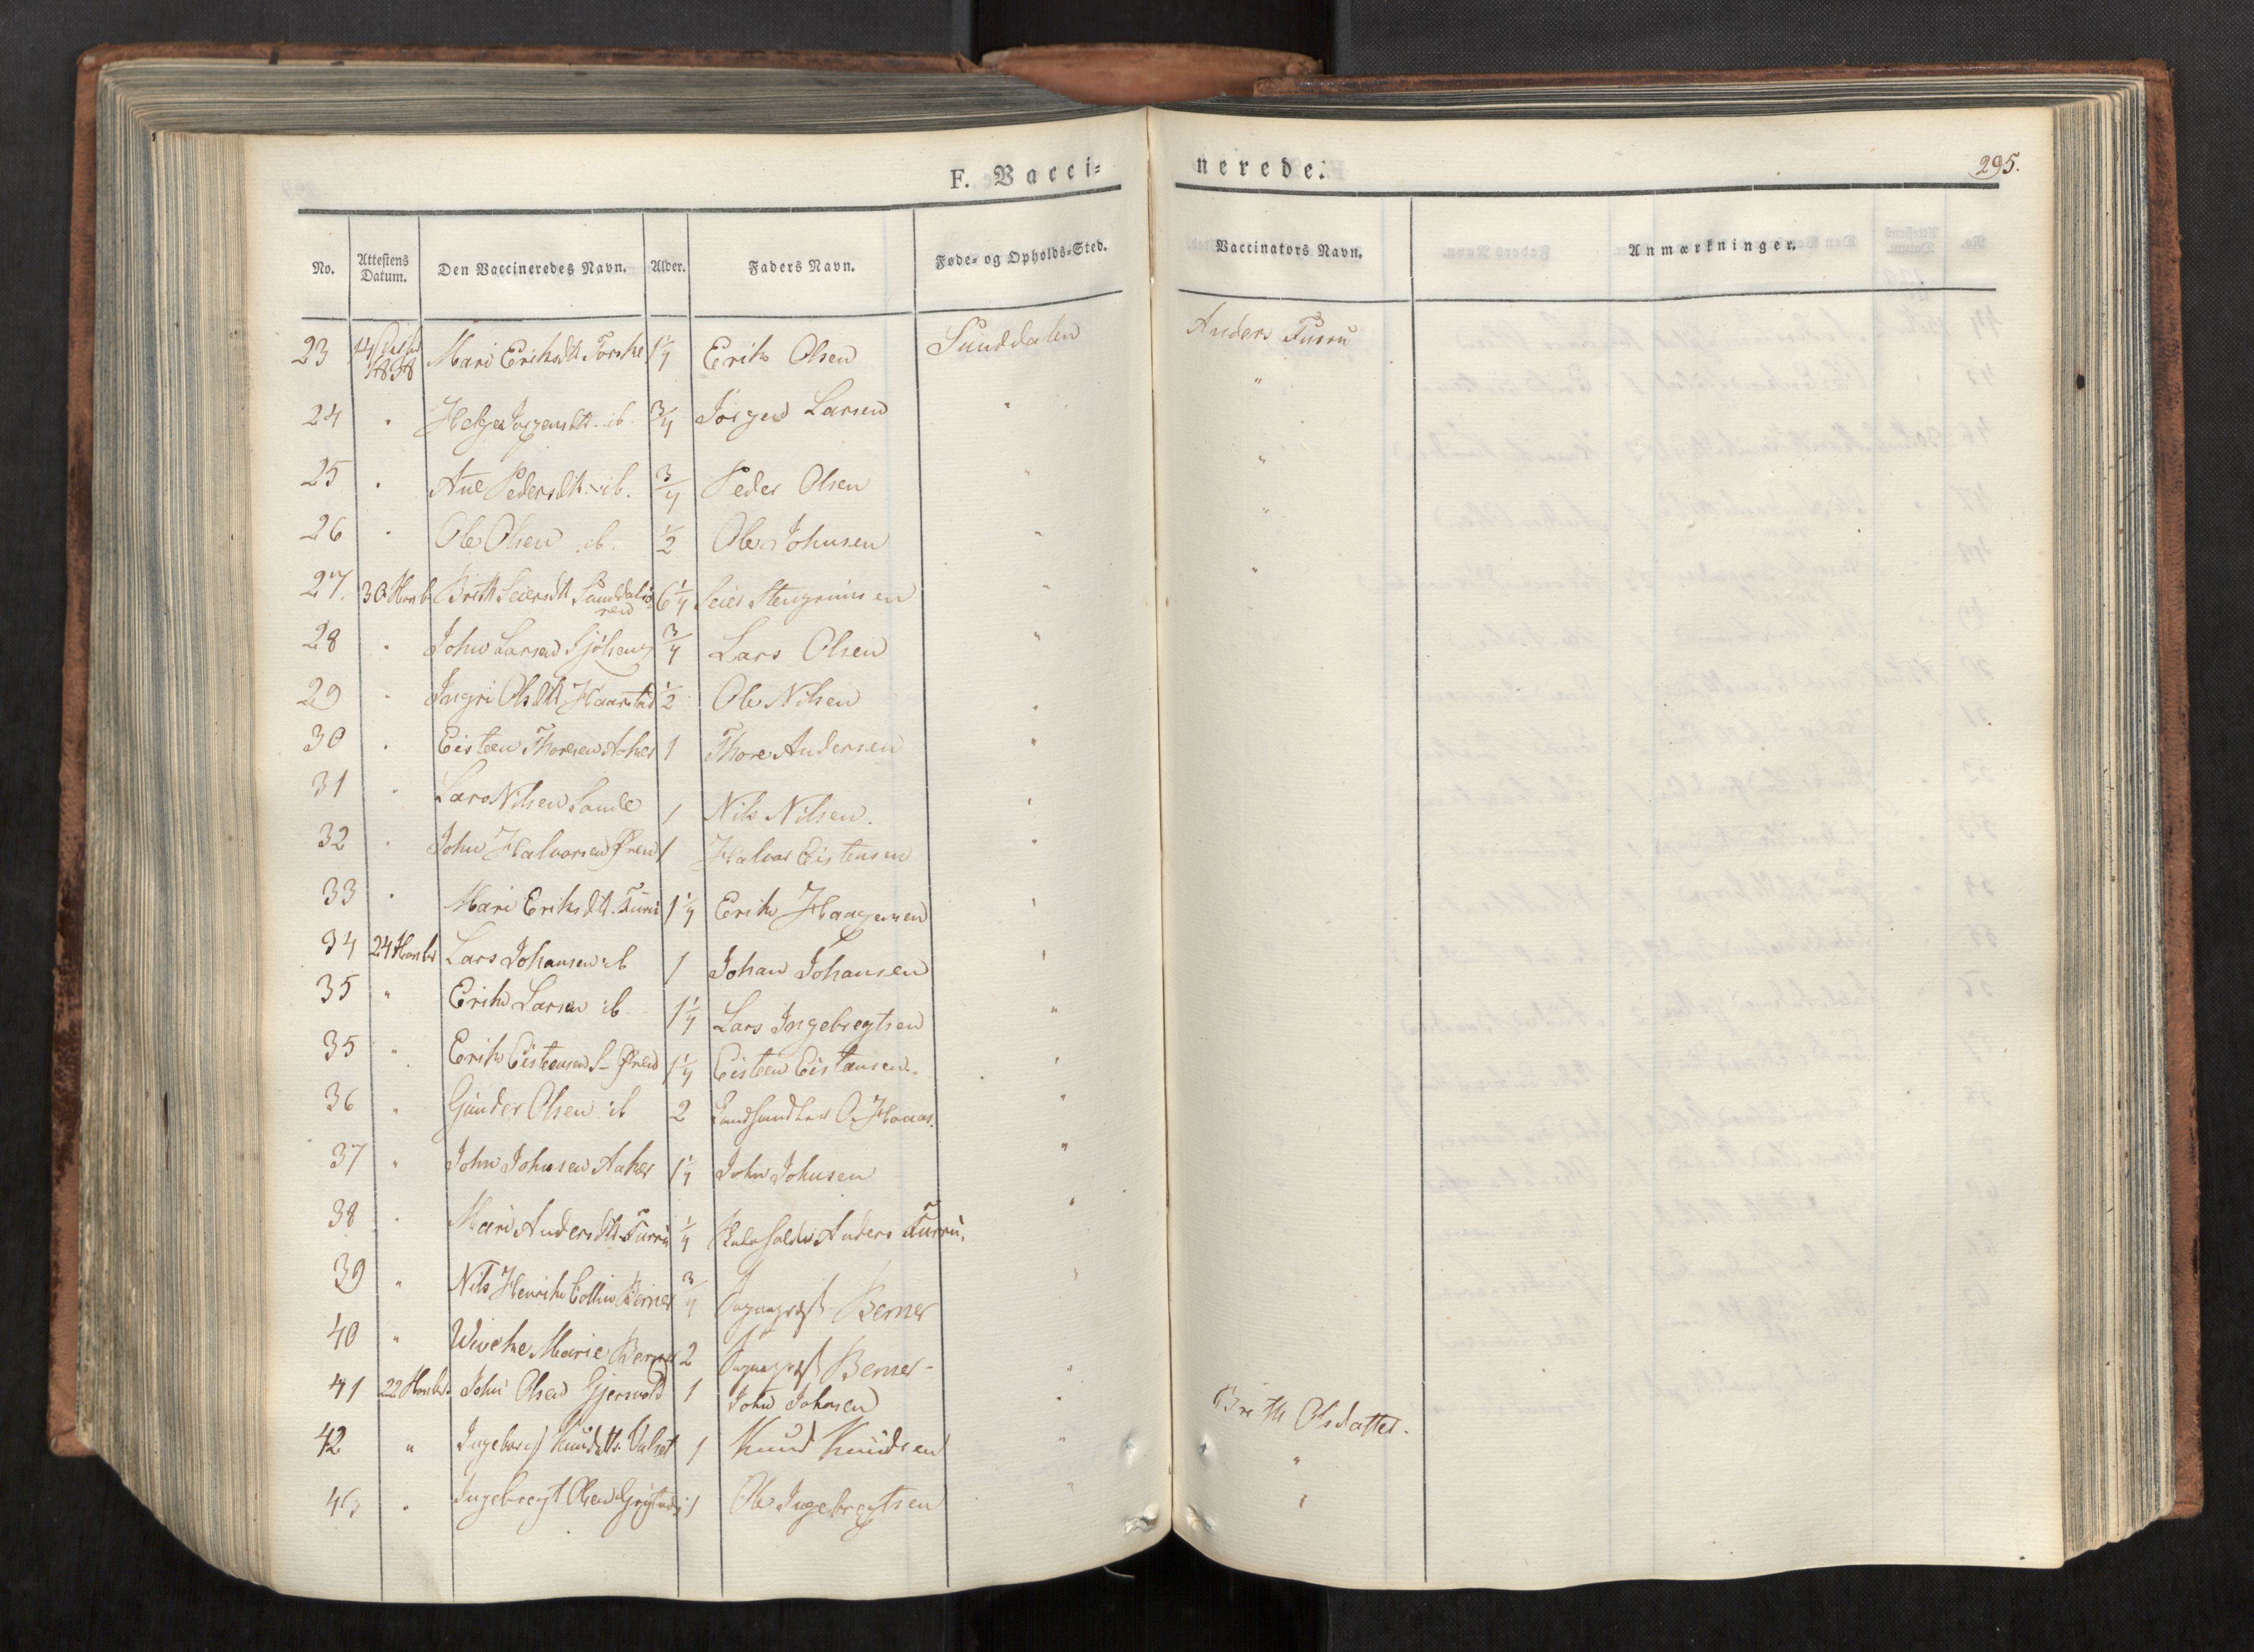 F. Vacci=
nerede.
295.
No.
Attestens Datum.
Den Vaccineredes Navn.
Alder.
Faders Navn.
Føde= og Opholds=Sted.
Vaccinators Navn.
Anmærkninger.
23 14 1838 Mari Eriksdtt Torske 1¼ Erik Olsen Sunddalen Anders Furru
24 " Helge Jørgensdtt. ib. ¾ Jørgen Larsen " "
25 " Ane Pedersdtt. ib. ¾ Peder Olsen " "
26 " Ole Olsen ib. ½ Ole Johnsen " "
27. 30 Novb Britt Seiersdtt Sunddalsøren 6¼ Seier Stengrimsen " "
28 " John Larsen ¾ Lars Olsen "
29 " Ingri Olsdtt Haarstad ½ Ole Nilsen "
30 " Eisteen Thoresen Aaker 1 Thore Andersen "
31 " Lars Nilsen Sande 1 Nils Nilsen. "
32 " John Halvorsen Øren 1 Halvor Eistensen "
33 " Mari Eriksdtt. Furru 1¼ Erik Haagensen "
34 24 Novbr Lars Johansen ib 1 Johan Johansen "
35 " Erik Larsen ib. 1¼ Lars Ingebregtsen "
35 " Erik Eisteensen S-Øren 1¼ Eisteen Eistensen. "
36 " Gunder Olsen ib 2 O. Haaas. "
37 " John Johnsen Aaker 1¼ John Johnsen "
38 " Mari Andersdtt Furru ¼ Anders Furru. "
39 " Nils Henrik Collin Berner ¾ Sognepræst Berner "
40 " Wiveke Marie Berner 2 Sognepræst Berner- "
41 22 Novbr. John Olsen Gjersvold 1 John Johnsen " Brith Olsdatter.
42 " Ingeborg Knudsdtt. Valset 1 Knud Knudsen " "
43 " Ingebregt Olsen 1 Ole Ingebregtsen " "